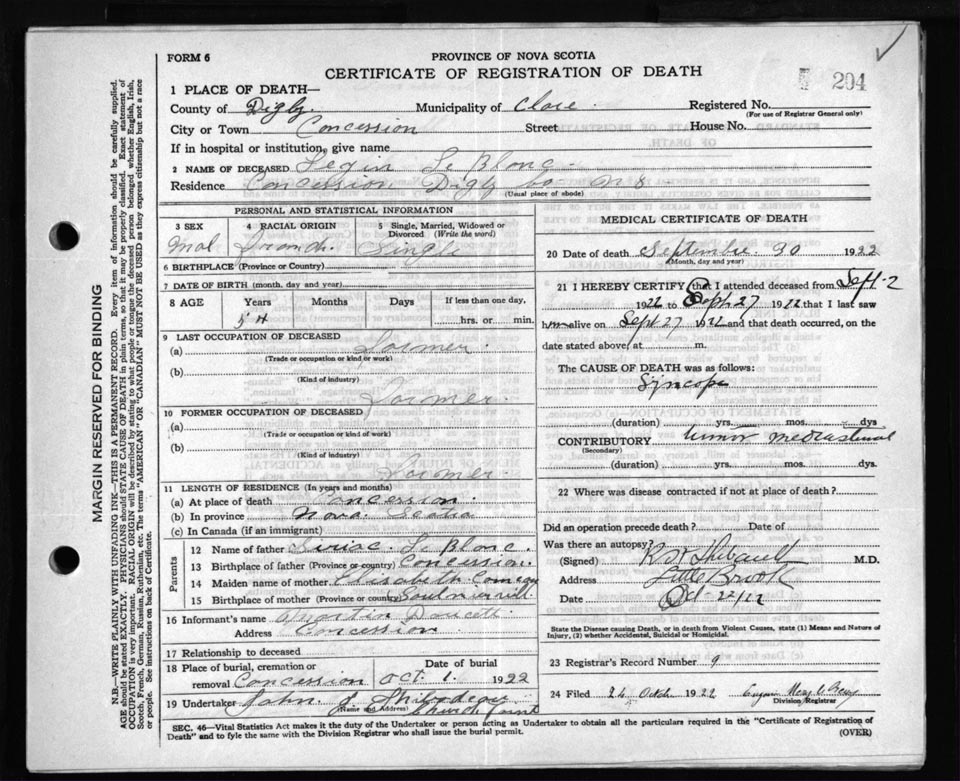 FORM 6
PROVINCE OF NOVA SCOTIA
CERTIFICATE OF REGISTRATION OF DEATH
204
1 PLACE OF DEATH—
County of Digby. Municipality of Clare. Registered No.
(For use of Registrar General only)
City or Town Concession Street House No.
If in hospital or institution, give name
2 NAME OF DECEASED Le Blanc.
Residence Concession Digby Co N S
(Usual place of abode)
PERSONAL AND STATISTICAL INFORMATION
3 SEX 4 RACIAL ORIGIN 5 Single, Married, Widowed or Divorced (Write the word)
Mal French. Single
6 BIRTHPLACE (Province or Country)
7 DATE OF BIRTH (month, day, and year)
8 AGE Years Months Days If less than one day,
54 hrs. or min.
9 LAST OCCUPATION OF DECEASED
(a) Farmer.
(Trade or occupation or kind of work)
(b)
(Kind of industry)
Farmer.
10 FORMER OCCUPATION OF DECEASED
(a)
(Trade or occupation or kind of work)
(b)
(Kind of industry)
Farmer.
11 LENGTH OF RESIDENCE (In years and months)
(a) At place of death Concession.
(b) In province Nova Scotia
(c) In Canada (if an immigrant)
Parents
12 Name of father Le Blanc.
13 Birthplace of father (Province or country) Concession.
14 Maiden name of mother Elisabeth Comeau
15 Birthplace of mother (Province or country)
16 Informant's name Doucett
Address Concession
17 Relationship to deceased
18 Place of burial, cremation or removal Concession Date of burial Oct 1. 1922
19 Undertaker John J Thibodeau
(Name and Address) Church Point
MEDICAL CERTIFICATE OF DEATH
20 Date of death September. 30 1922
(Month, day and year)
21 I HEREBY CERTIFY that I attended deceased from Sept-2
1922 to Sept 27 1922 that I last saw
him alive on Sept 27 1922 and that death occurred, on
date stated above, at m.
The CAUSE OF DEATH was as follows:
Syncope
(duration) yrs. mos. dys
CONTRIBUTORY tumor mediastinal
(Secondary)
(duration) yrs. mos. dys.
22 Where was disease contracted if not at place of death?
Did an operation precede death? Date of
Was there an autopsy?
(Signed) Thibault M.D.
Address Little Brook
Date Oct-22/22
State the Disease causing Death, or in death from Violent Causes, state (1) Means and Nature of Injury, (2) whether Accidental, Suicidal or Homicidal.
23 Registrar's Record Number 9
24 Filed 26 Octobr 1922
Division Registrar
SEC. 46—Vital Statistics Act makes it the duty of the Undertaker or person acting as Undertaker to obtain all the particulars required in the "Certificate of Registration of
Death" and to fyle the same with the Division Registrar who shall issue the burial permit. (OVER)
MARGIN RESERVED FOR BINDING
N.B.—WRITE PLAINLY WITH UNFADING INK—THIS IS A PERMANENT RECORD. Every item of information should be carefully supplied.
AGE should be stated EXACTLY. PHYSICIANS should STATE CAUSE OF DEATH in plain terms, so that it may be properly classified. Exact statement of
OCCUPATION is very important. RACIAL ORIGIN will be described by stating to what people or tongue the deceased person belonged whether English, Irish,
Scotch, French, German, Russian, Ruthenian, etc. The terms "AMERICAN" OR "CANADIAN" MUST NOT BE USED as they express citizenship but not a race
or people. See instructions on back of Certificate.